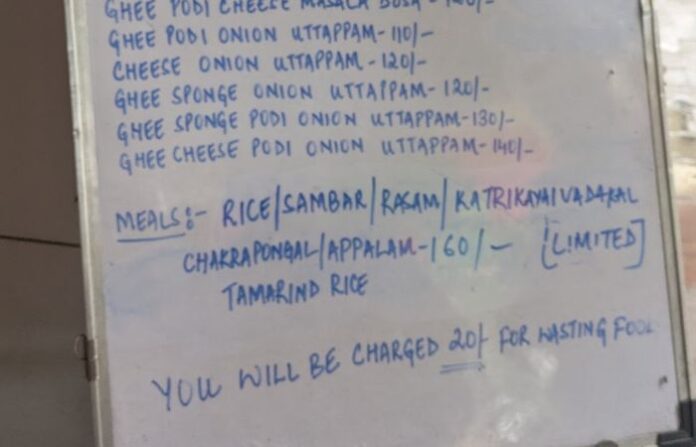 GHEE PODI CHEESE MASALA DOSA - 140/-
GHEE PODI ONION UTTAPPAM - 110/-
CHEESE ONION UTTAPPAM - 120/-
GHEE SPONGE ONION UTTAPPAM - 120/-
GHEE SPONGE PODI ONION UTTAPPAM - 130/-
GHEE CHEESE PODI ONION UTTAPPAM - 140/-
MEALS:- RICE/SAMBAR/RASAM/KATRIKAYAIVADAKAL
CHAKRAPONGAL/APPALAM - 160/- [LIMITED]
TAMARIND RICE
YOU WILL BE CHARGED 20/- FOR WASTING FOOD